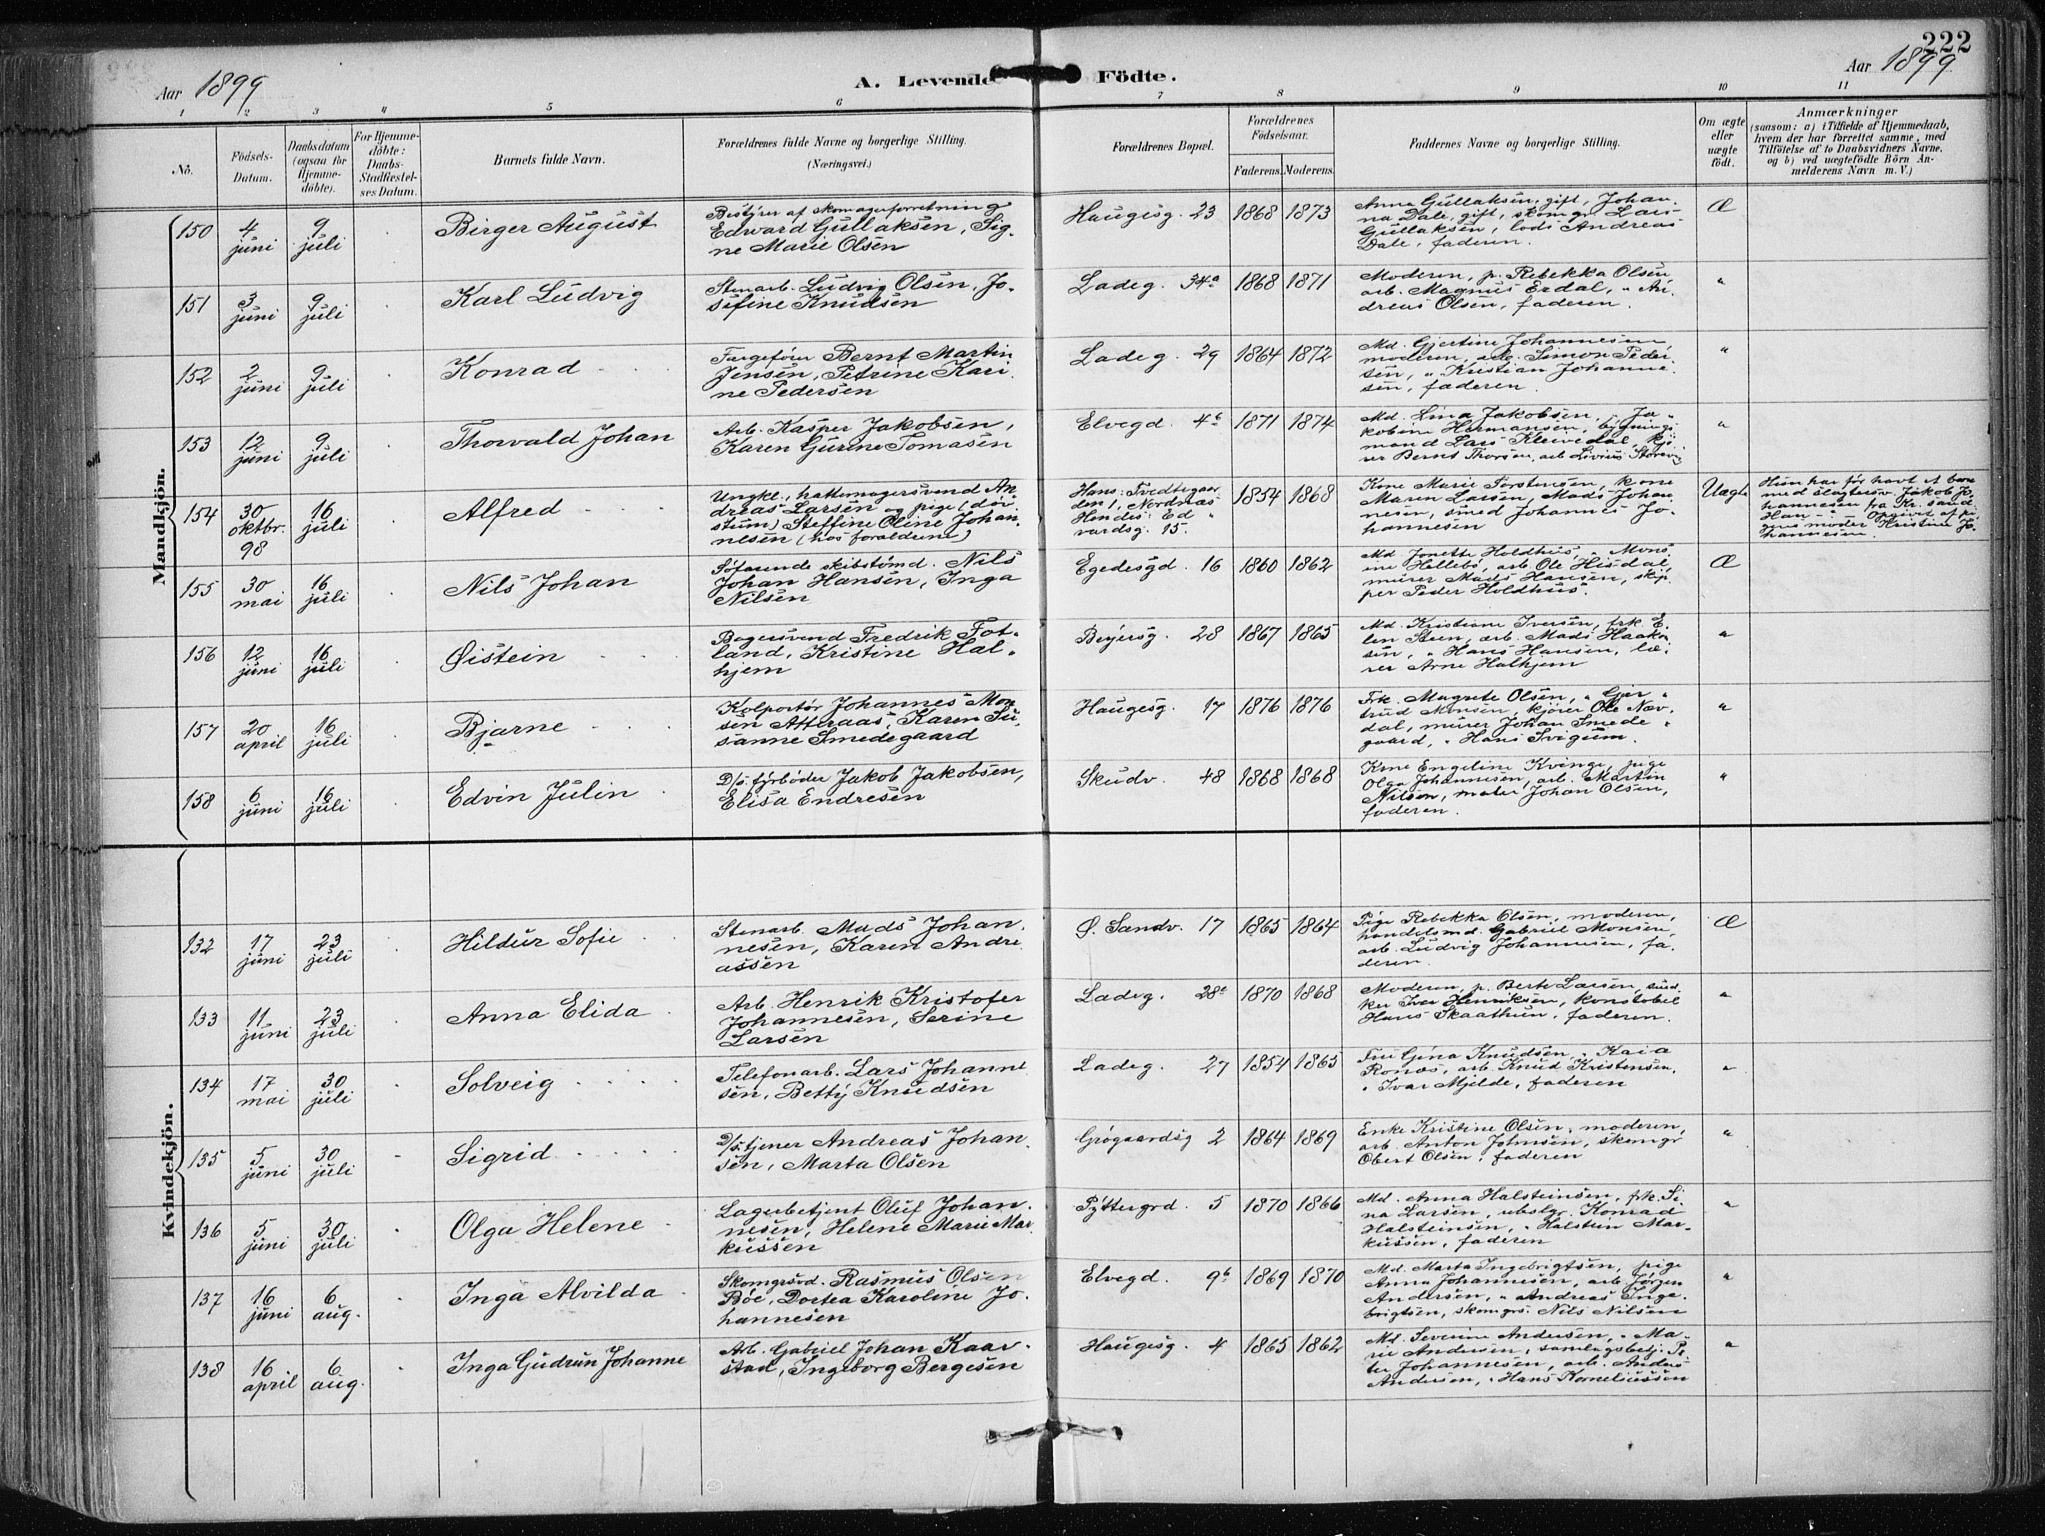 222
Aar 1899
A. Levende Födte.
Aar 1899
1 2 3 4 5 6 7 8 9 10 11
No.
Födsels-Datum.
Daabsdatum (ogsaa for Hjemme-döbte).
For Hjemme-döbte: Daabs-Stadfæstel-ses Datum.
Barnets fulde Navn.
Forældrenes fulde Navne og borgerlige Stilling. (Næringsvei.)
Forældrenes Bopæl.
Forældrenes Födselsaar.
Faderens. Moderens.
Faddernes Navne og borgerlige Stilling.
Om ægte eller uægte födt.
Anmærkninger
(saasom: a) i Tilfælde af Hjemmedaab, hvem der har forrettet samme, med Tilföielse af to Daabsvidners Navne, og b) ved uægtefödte Börn An-melderens Navn m. V.)
Mandkjön.
150 4 juni 9 juli Birger August
Bestyrer af skomagerforretning
Edward Gullaksen, Sig-
ne Marie Olsen
Haugesg. 23 1868 1873
Anna Gullaksen, gift, Johan-
na Dale, gift, skomgr. Lars
Gullaksen, lods Andreas
Dale, faderen.
Æ
151 3 juni 9 juli Karl Ludvig
Stenarb. Ludvig Olsen, Jo-
sefine Knudsen
Ladeg. 34a 1868 1871
Moderen, p. Rebekka Olsen
arb. Magnus Erdal, " An-
dreas Olsen, faderen.
"
152 2 juni 9 juli Konrad
Færgefører Bernt Martin
Jensen, Petrine Kari-
ne Pedersen
Ladeg. 29 1864 1872
Md. Gjertine Johannesen
moderen, arb. Simon Peder-
sen, " Kristian Johanne-
sen, faderen.
"
153 12 juni 9 juli Thorvald Johan
Arb. Kasper Jakobsen,
Karen Gurine Tomasen
Elvegd. 4b 1871 1874
Md. Lina Jakobsen, " Ja-
kobine Hermansen, bygnings-
mand Lars Kleivedal, kjø-
rer Bernt Thorsen, arb Livius
"
154 30 oktbr. 98 16 juli Alfred
Ungkl., hattemagersvend An-
dreas Larsen og pige (døv-
stum) Steffine Oline Johan-
nesen (hos forældrene)
Hans: Tredtegaar-
den 1, Nordnæs
Hendes: Ed-
vardsg. 15.
1854 1868
Kone Marie Torstensen, kone
Maren Larsen, Mads Johan-
nesen, smed Johannes Jo-
hannesen
Uægte
Hun har før havt et barn
med slagtersv. Jakob Jo-
hannesen fra Kr. sand
Han - " - Opgivet af pi-
gens moder Kristine Jo-
hannesen.
155 30 mai 16 juli Nils Johan
Søfarende skibstømd. Nils
Johan Hansen, Inga
Nilsen
Egedesgd. 16 1860 1862
Md. Jonette Holdhus, " Mons-
ine Hellebø, arb. Ole Hisdal,
murer Mads Hansen, skip-
per Peder Holdhus.
Æ
156 12 juni 16 juli Øistein
Bagersvend Fredrik Fot-
land, Kristine Hal-
hjem
Beyersg. 28 1867 1865
Md. Kristiane Iversen, frk. E-
len Steen, arb. Mads Haak-
sen, " Hans Hansen, læ-
rer Arne Halhjem
"
157 20 april 16 juli Bjarne
Kolportør Johannes Mon-
sen Attraas, Karen Su-
sanne Smedegaard
Haugesg. 17 1876 1876
Frk. Magrete Olsen, " Gjer-
trud Monsen, kjører Ole Nav-
dal, murer Johan Smede-
gaard, " Hans Svigum.
"
158 6 juni 16 juli Edvin Julin
D/s. fyrbøder Jakob Jakobsen,
Elisa Endresen
Skudv. 48 1868 1868
Kone Engeline Kvinge, pige
Olga Johannesen, arb. Martin
Nilsen, maler Johan Olsen,
faderen.
"
Kvindekjön.
132 17 juni 23 juli Hildur Sofie
Stenarb. Mads Johan-
nesen, Karen Andre-
assen
Ø. Sandv. 17 1865 1864
Pige Rebekka Olsen, moderen,
handelsmd. Gabriel Monsen,
arb. Ludvig Johannesen, fa-
deren.
Æ
133 11 juni 23 juli Anna Elida
Arb. Henrik Kristofer
Johannesen, Serine
Larsen
Ladeg. 28a 1870 1868
Moderen, p. Berte Larsen, snd-
ker Iver Henriksen, konstabel
Hans Skaathun, faderen.
"
134 17 mai 30 juli Solveig
Telefonarb. Lars Johanne-
sen, Betty Knudsen
Ladeg. 27 1854 1865
Fru Gina Knudsen, " Kaia
Ronæs, arb. Knud Kristensen,
" Ivar Mjelde, faderen
"
135 5 juni 30 juli Sigrid
D/s. tjener Andreas Johan-
sen, Marta Olsen
Grøgaardsg 2 1864 1869
Enke Kristine Olsen, moderen,
arb. Anton Johnsen, skomgr
Obert Olsen, faderen
"
136 5 juni 30 juli Olga Helene
Lagerbetjent Oluf Johan-
nesen, Helene Marie Mar-
kussen
Pyttergrd. 5 1870 1866
Md. Anna Halsteinsen, frk. Si-
na Larsen, ubslgr. Konrad
Halsteinsen, " Halstein Mar-
kussen, faderen
"
137 16 juni 6 aug. Inga Alvilda
Skomgrsvd. Rasmus Olsen
Bøe, Dortea Karoline Jo-
hannesen
Elvegd. 9b 1869 1870
Md. Marta Ingebrigtsen, pige
Anna Johannesen, arb. Jørgen
Andersen, " Andreas Inge-
brigtsen, skomgrs. Nils Nilsen
"
138 16 april 6 aug. Inga Gudrun Johanne
Arb. Gabriel Johan Kaar-
stad, Ingeborg Bergesen
Haugesg. 4 1865 1862
Md. Severine Andersen, " Ma-
rie Andersen, samlagsbetj. Pe-
ter Johannesen, arb. Anders
Andersen, " Hans Korneliussen
"